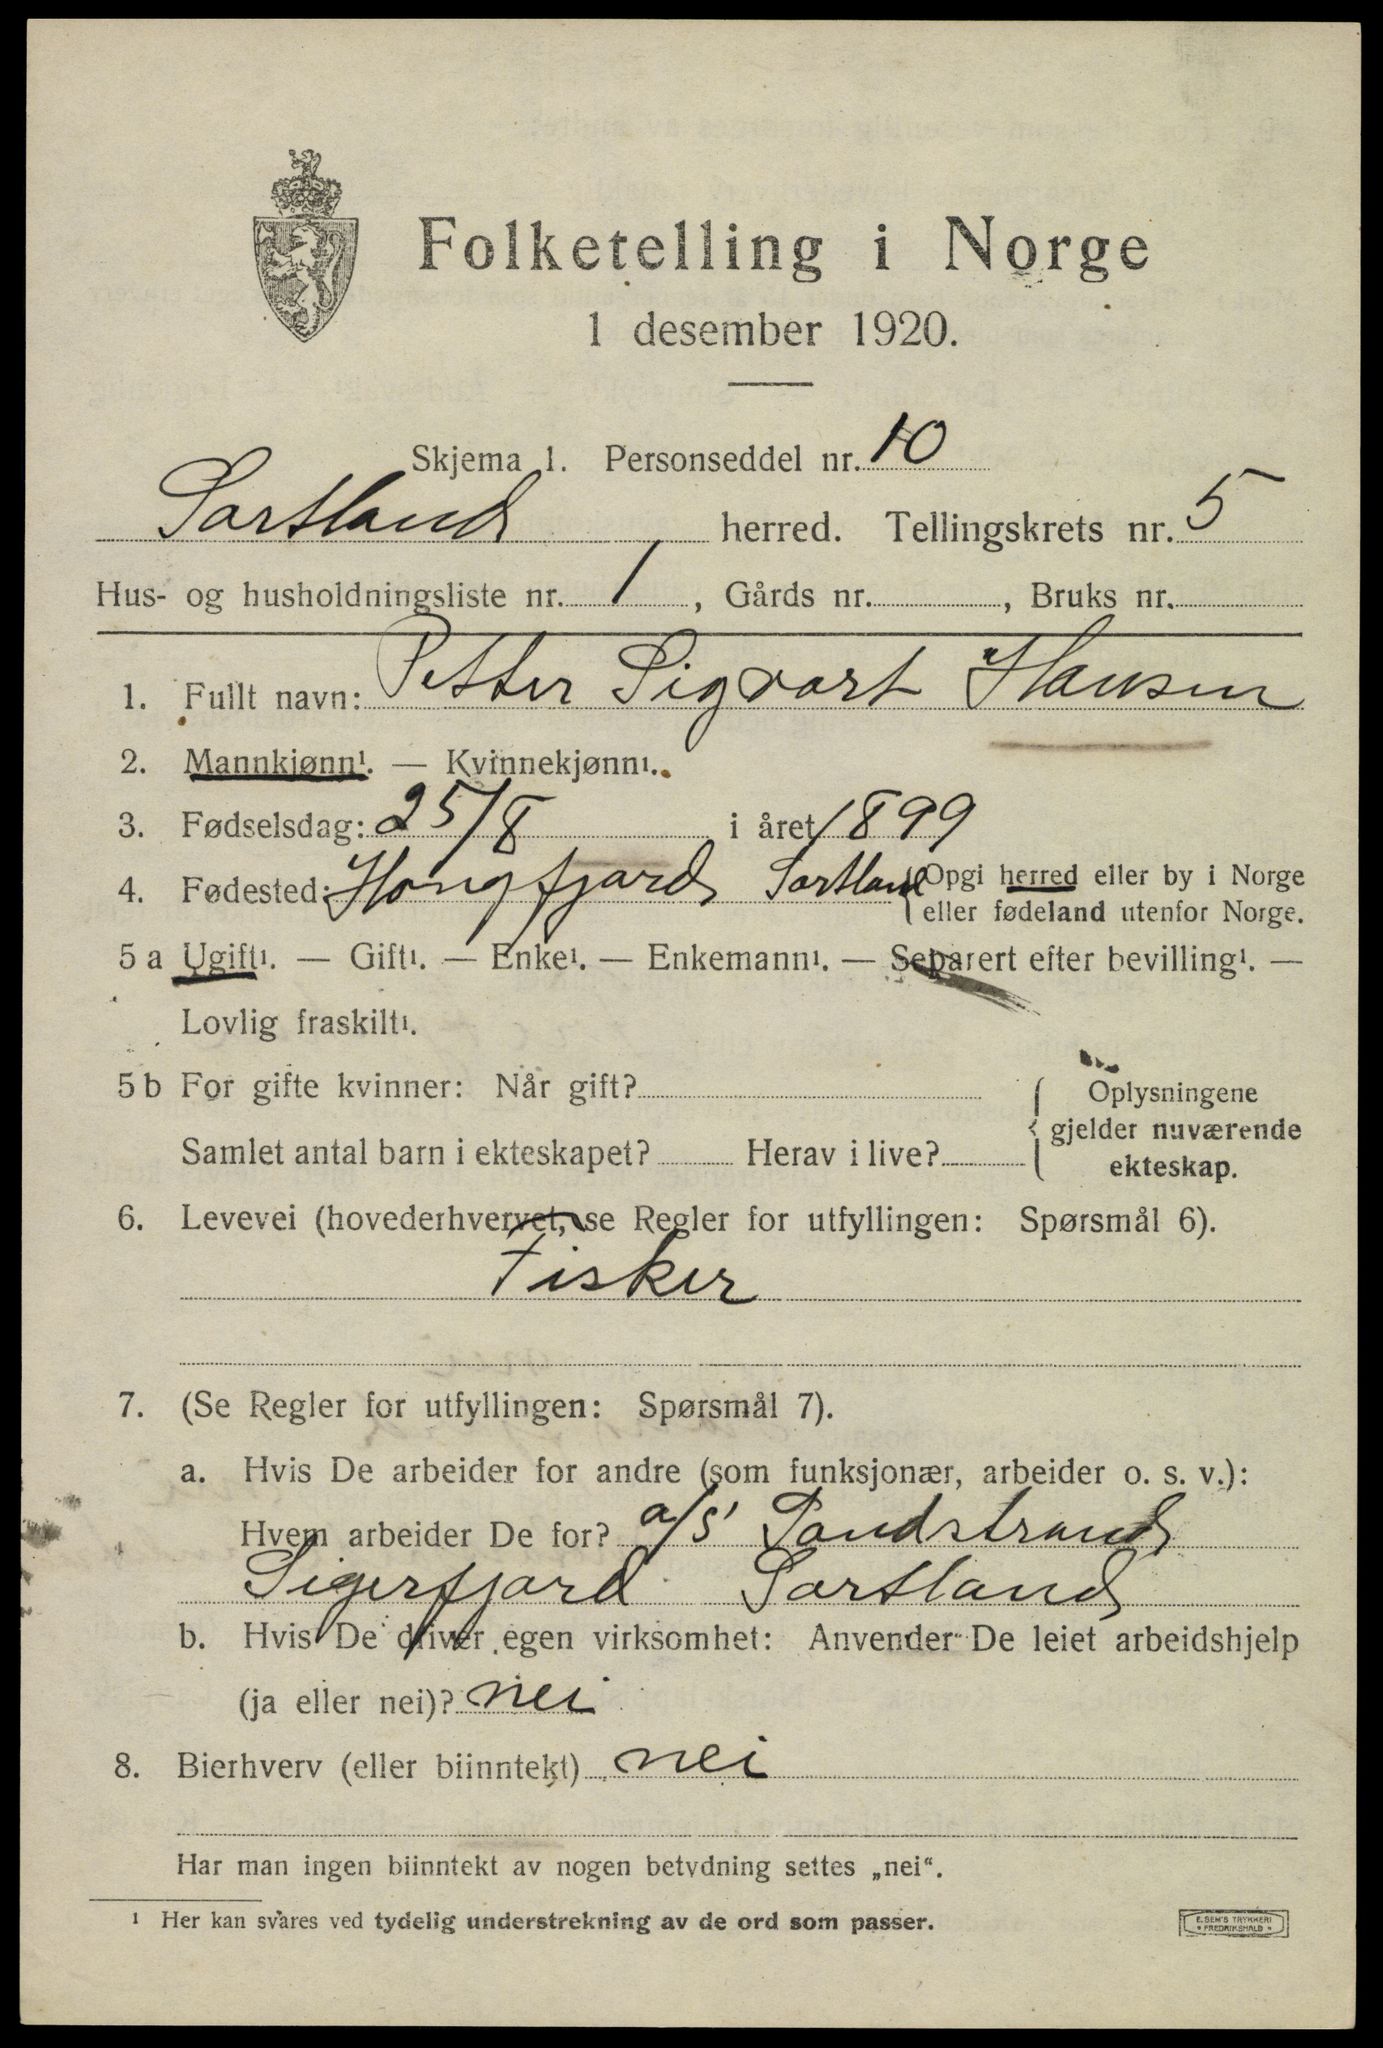 Folketelling i Norge
1 desember 1920.
Skjema 1. Personseddel nr. 10
Sortland herred. Tellingskrets nr. 5
Hus- og husholdningsliste nr. 1, Gårds nr. , Bruks nr.
1. Fullt navn: Petter Sigvart Hansen
2. Mannkjønn¹. — Kvinnekjønn¹.
3. Fødselsdag: 25/8 i året 1899
4. Fødested: Hongfjord Sortland { Opgi herred eller by i Norge
eller fødeland utenfor Norge.
5 a Ugift¹. — Gift¹. — Enke¹. — Enkemann¹. — Separert efter bevilling¹. —
Lovlig fraskilt¹.
5 b For gifte kvinner: Når gift? { Oplysningene
gjelder nuværende
Samlet antal barn i ekteskapet? Herav i live? ekteskap.
6. Levevei (hovederhvervet, se Regler for utfyllingen: Spørsmål 6).
Fisker
7. (Se Regler for utfyllingen: Spørsmål 7).
a. Hvis De arbeider for andre (som funksjonær, arbeider o. s. v.):
Hvem arbeider De for? a/s Sandstrand
Sigerfjord Sortland
b. Hvis De driver egen virksomhet: Anvender De leiet arbeidshjelp
(ja eller nei)? nei
8. Bierhverv (eller biinntekt) nei
Har man ingen biinntekt av nogen betydning settes „nei“.
¹ Her kan svares ved tydelig understrekning av de ord som passer.
E. SEM'S TRYKKERI
* FREDRIKSHALD *